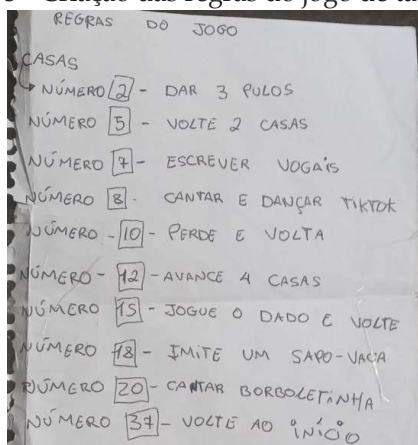 REGRAS DO JOGO
CASAS
NÚMERO 2 - DAR 3 PULOS
NÚMERO 5 - VOLTE 2 CASAS
NÚMERO 7 - ESCREVER VOGAIS
NÚMERO 8 - CANTAR E DANÇAR TIKTOK
NÚMERO - 10 - PERDE E VOLTA
NÚMERO - 12 - AVANCE 4 CASAS
NÚMERO 15 - JOGUE O DADO E VOLTE
NÚMERO 18 - IMITE UM SAPO-VACA
NÚMERO 20 - CANTAR BORBOLETINHA
NÚMERO 37 - VOLTE AO INÍCIO